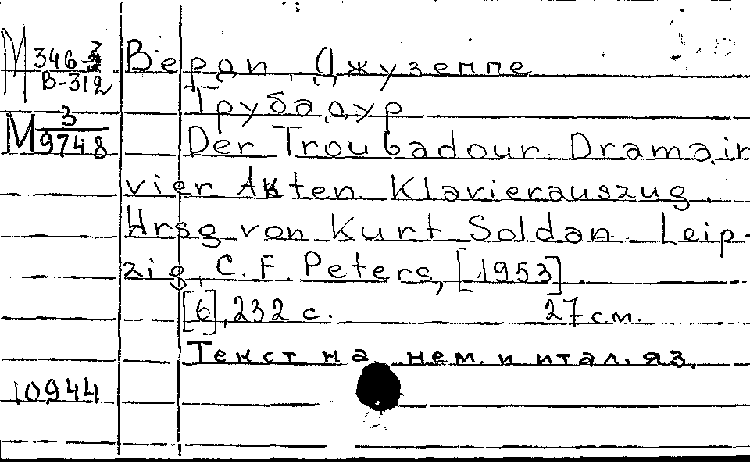 М 346-3 Верди, Джузеппе
В-312
Трубадур
М 3
9748 Der Troubadour. Drama in
vier Akten. Klavierauszug.
Hrsg von Kurt Soldan. Leip-
zig, C. F. Peters, [1953]
[6], 232 с. 27 см.
Текст на нем. и итал. яз.
10944